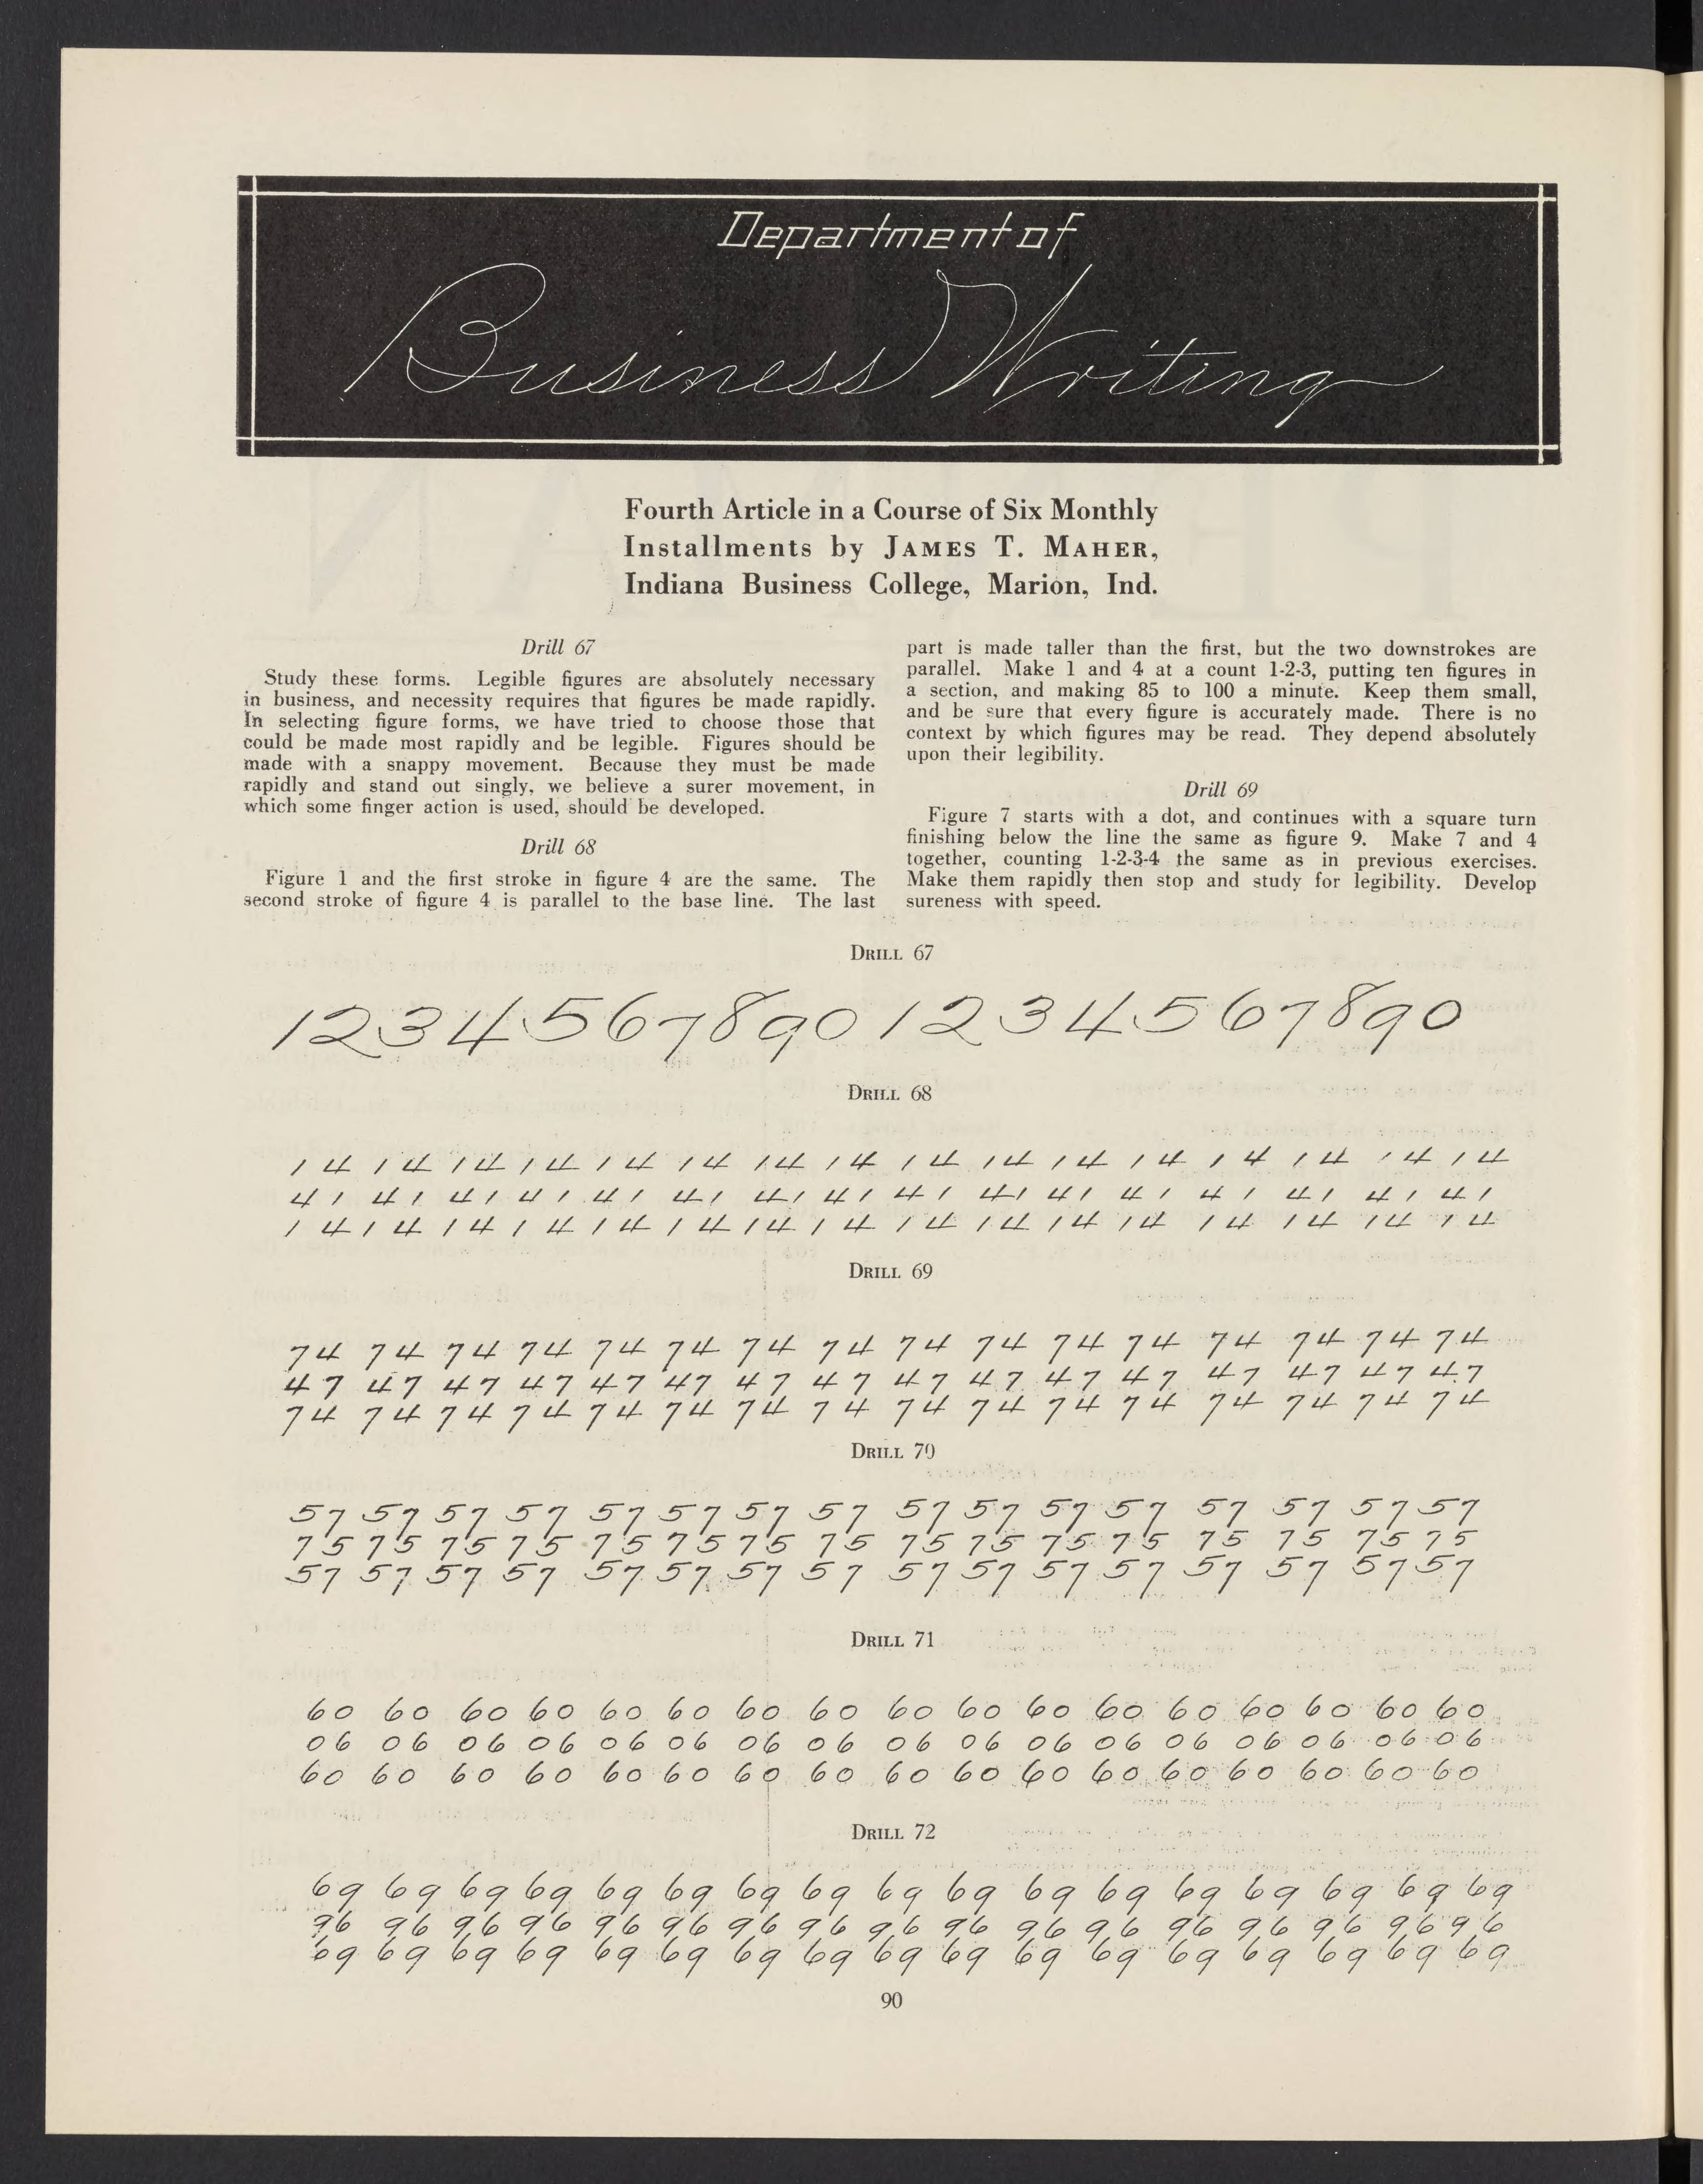 Department of
Business Writing
Fourth Article in a Course of Six Monthly
Installments by JAMES T. MAHER,
Indiana Business College, Marion, Ind.
Drill 67
Study these forms. Legible figures are absolutely necessary
in business, and necessity requires that figures be made rapidly.
In selecting figure forms, we have tried to choose those that
could be made most rapidly and be legible. Figures should be
made with a snappy movement. Because they must be made
rapidly and stand out singly, we believe a surer movement, in
which some finger action is used, should be developed.
Drill 68
Figure 1 and the first stroke in figure 4 are the same. The
second stroke of figure 4 is parallel to the base line. The last
part is made taller than the first, but the two downstrokes are
parallel. Make 1 and 4 at a count 1-2-3, putting ten figures in
a section, and making 85 to 100 a minute. Keep them small,
and be sure that every figure is accurately made. There is no
context by which figures may be read. They depend absolutely
upon their legibility.
Drill 69
Figure 7 starts with a dot, and continues with a square turn
finishing below the line the same as figure 9. Make 7 and 4
together, counting 1-2-3-4 the same as in previous exercises.
Make them rapidly then stop and study for legibility. Develop
sureness with speed.
DRILL 67
1 2 3 4 5 6 7 8 9 0 1 2 3 4 5 6 7 8 9 0
DRILL 68
14 14 14 14 14 14 14 14 14 14 14 14 14 14 14 14
41 41 41 41 41 41 41 41 41 41 41 41 41 41 41 41
14 14 14 14 14 14 14 14 14 14 14 14 14 14 14 14
DRILL 69
74 74 74 74 74 74 74 74 74 74 74 74 74 74 74 74
47 47 47 47 47 47 47 47 47 47 47 47 47 47 47 47
74 74 74 74 74 74 74 74 74 74 74 74 74 74 74 74
DRILL 70
57 57 57 57 57 57 57 57 57 57 57 57 57 57 57 57
75 75 75 75 75 75 75 75 75 75 75 75 75 75 75 75
57 57 57 57 57 57 57 57 57 57 57 57 57 57 57 57
DRILL 71
60 60 60 60 60 60 60 60 60 60 60 60 60 60 60 60 60
06 06 06 06 06 06 06 06 06 06 06 06 06 06 06 06 06
60 60 60 60 60 60 60 60 60 60 60 60 60 60 60 60 60
DRILL 72
69 69 69 69 69 69 69 69 69 69 69 69 69 69 69 69 69
96 96 96 96 96 96 96 96 96 96 96 96 96 96 96 96 96
69 69 69 69 69 69 69 69 69 69 69 69 69 69 69 69 69
90